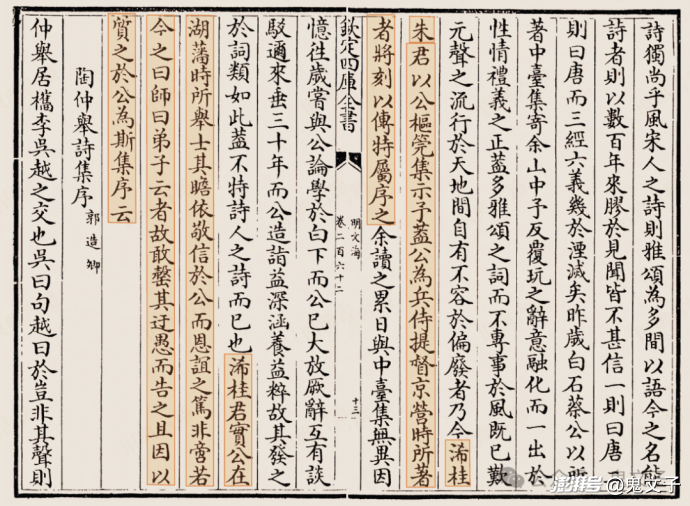 詩獨尚乎風宋人之詩則雅頌為多間以語今之名能
詩者則以數百年來膠於見聞皆不甚信一則曰唐
則曰唐而三經六義幾於湮滅矣昨歲白石蔡公以所
著中臺集寄余山中子反覆玩之辭意融化而一出於
性情禮義之正蓋多雅頌之詞而不專事於風既已歎
元聲之流行於天地間自有不容於偏廢者乃今浠桂
朱君以公樞筦集示予蓋公為兵侍提督京營時所著
者將刻以傳特屬序之余讀之累日與中臺集無異因
欽定四庫全書
明文海
卷二百六十二
十三
憶往歲嘗與公論學於白下而公已大放厥辭互有談
駁邇來垂三十年而公造詣益深涵養益粹故其發之
於詞類如此蓋不特詩人之詩而已也浠桂君實公在
湖藩時所舉士其瞻依敬信於公而恩誼之篤非啻若
今之曰師曰弟子云者故敢罄其迂愚而告之且因以
質之於公為斯集序云
陶仲舉詩集序 郭造卿
仲舉居檇李吳越之交也吳曰句越曰於豈非其聲則
澎湃号@鬼文子